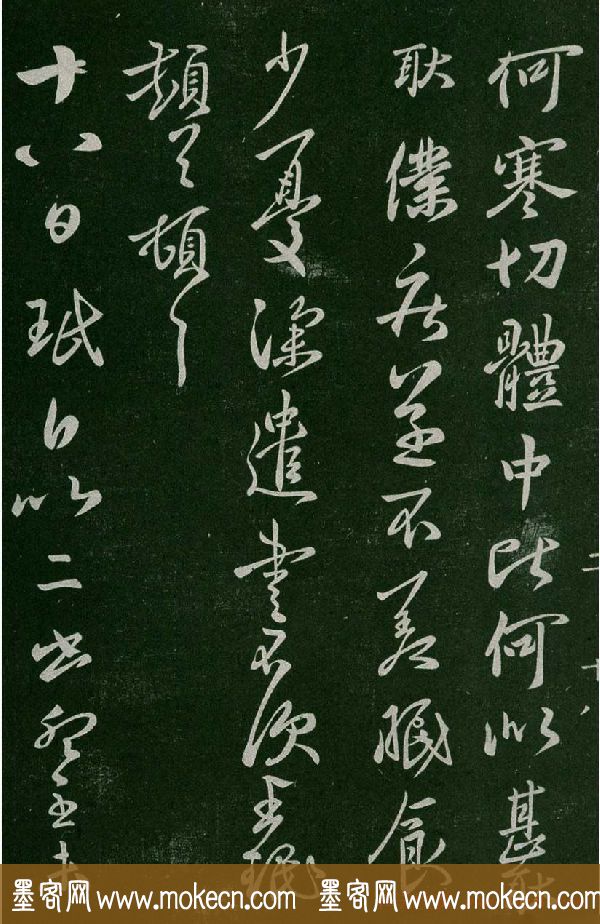 何寒切體中比何似甚耿
耿僕疾恙不差眠食
少憂深遣書不次王珉
頓首頓首
十八日珉白以二出
墨客网 www.mokecn.com 墨客网 www.mokecn.com